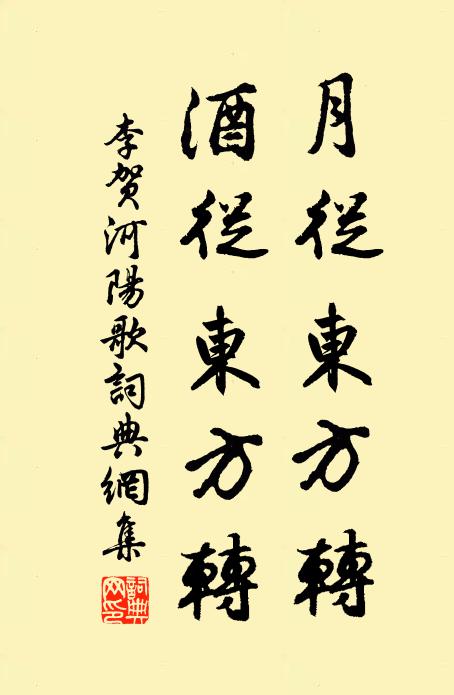 月從東方轉
酒從東方轉
李賀河陽歌詞典網集
詞典網印